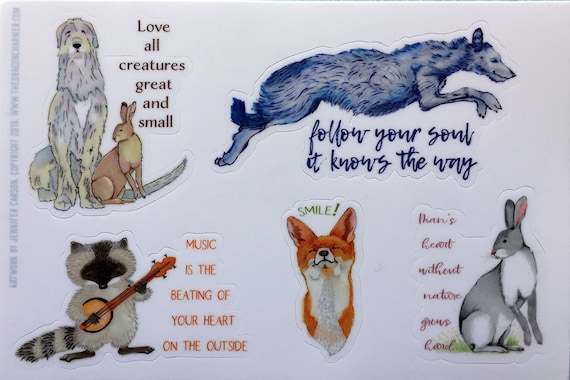 Love
all
creatures
great
and
small
follow your soul
it knows the way
MUSIC
IS THE
BEATING OF
YOUR HEART
ON THE OUTSIDE
SMILE!
Man's
heart
without
nature
grows
hard
ARTWORK BY JENNIFER CARSON COPYRIGHT 2018. WWW.THEDRAGONCHARMER.COM